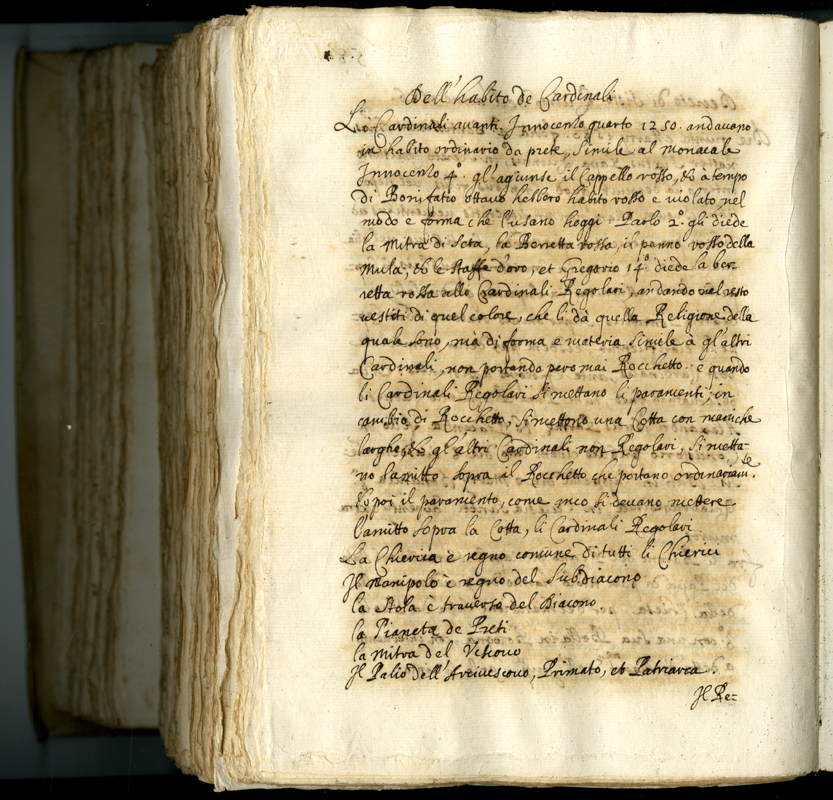 Dell'habito de Cardinali
Li Cardinali avanti Innocentio quarto 1250. andavano
in habito ordinario da prete, simile al monacale
Innocentio 4º. gl'agiunse il Cappello rosso, & a tempo
di Bonifatio ottavo hebbero habito rosso e violato nel
modo e forma che l'usano hoggi. Paolo 2º. gli diede
la Mitra di Seta, la Beretta rossa, il panno rosso della
Mula, & le Staffe d'oro, et Gregorio 14º diede la ber-
retta rossa alli Cardinali Regolari, andando nel resto
vestiti di quel colore, che li dà quella Religione della
quale sono, mà di forma e materia simile à gl'altri
Cardinali, non portando pero mai Rocchetto. e quando
li Cardinali Regolari si mettano li paramenti, in
cambio di Rocchetto, si mettono una Cotta con maniche
larghe, & gl'altri Cardinali non Regolari, si metta-
no l'amitto sopra il Rocchetto che portano ordinariam.te
& poi il paramento, come anco si devano mettere
l'amitto sopra la Cotta, li Cardinali Regolari
La Chierica è segno comune di tutti li Chierici
Il Manipolo è segno del Subdiacono
la Stola è traverso del Diacono
la Pianeta de Preti
la Mitra del Vescovo
Il Palio dell'Arcivescovo, Primato, et Patriarca
Il Re-